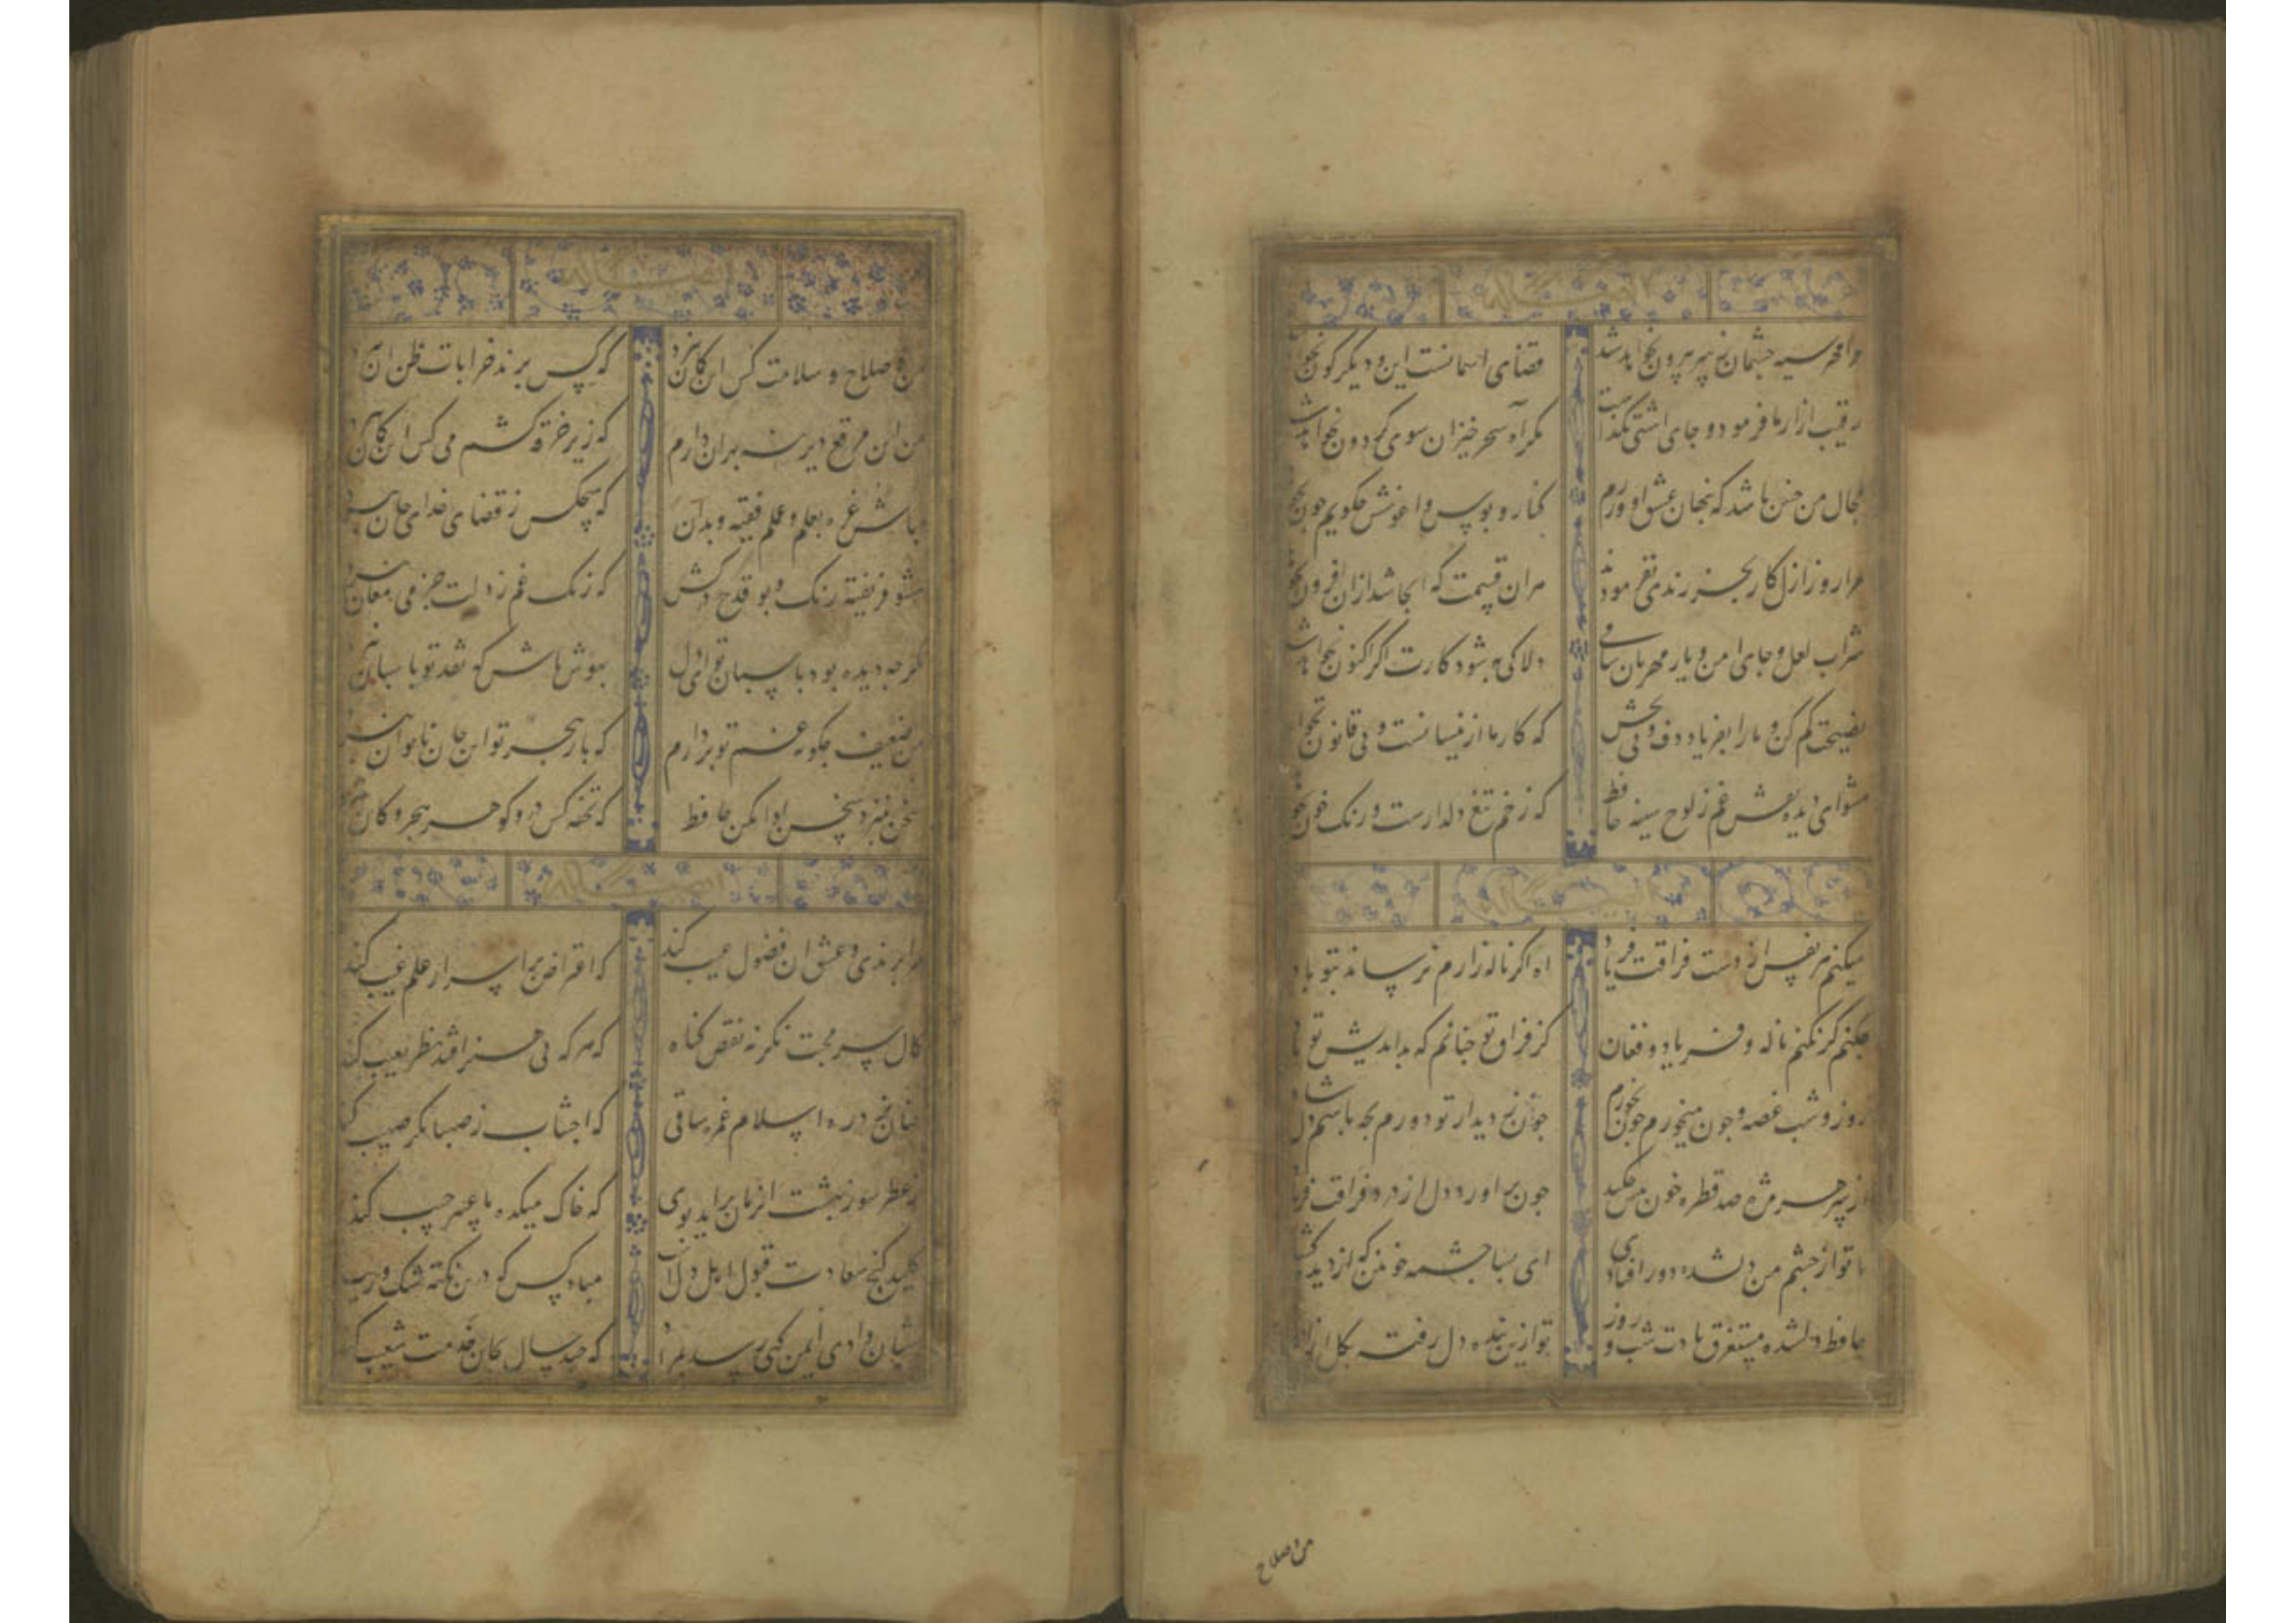 مرا مهر سیه چشمان ز سر بیرون نخواهد شد
قضای اسمانست این و دیگرگون نخواهد
رقیب ازارها فرمود و جای اشتی نگذاشت
مگر آه سحر خیزان سوی گردون نخواهد شد
مجال من همین باشد که پنهان عشق او ورزم
کنار و بوس و اغوشش چگویم چون نخواهد
مرا روز ازل کاری بجز رندی نفرمودند
هران قسمت که انجا شد ازان افزون نخواهد
شراب لعل و جای امن و یار مهربان ساقی
دلا کی به شود کارت اگر اکنون نخواهد شد
نصیحت کم کن و ما را بفریاد دف و نی بخش
که کار ما از نیسانست و بی قانون نخواهد
مشوای دیده نقش غم ز لوح سینه حافظ
که زخم تیغ دلدارست و رنگ خون نخواهد
میکنم هر نفس از دست فراقت فریاد
اه اگر ناله زارم نرساند بتو باد
چکنم گر نکنم ناله و فریاد و فغان
کز فراق تو چنانم که بداندیش تو باد
روز و شب غصه و خون میخورم و چون نخورم
چون ز دیدار تو دورم بچه باشم دلشاد
از بن هر مژه صد قطره خون بیش چکید
چون براورد دل از درد فراقت فریاد
تا تو از چشم من دلشده دور افتادی
ای بسا چشمه خونین که از دیده گشاد
حافظ دلشده مستغرق یادت شب و روز
تو ازین بنده دل رفته بکل ازاد
من و صلاح
من و صلاح و سلامت کس این گمان نبرد
که کس برند خرابات ظن ان نبرد
من این مرقع دیرینه بهر ان دارم
که زیر خرقه کشم می کس این گمان نبرد
مباش غره بعلم و عمل فقیه و بدان
که هیچکس ز قضای خدای جان نبرد
مشو فریفته رنگ و بو قدح درکش
که زنگ غم ز دلت جز می مغان نبرد
اگرچه دیده بود پاسبان تو ای دل
بهوش باش که نقد تو پاسبان نبرد
من ضعیف چگونه غم تو بردارم
که بار هجر تو این جان ناتوان نبرد
سخن بنزد سخن ادا مکن حافظ
که تحفه کس در و گوهر ببحر و کان نبرد
مرا برندی و عشق ان فضول عیب کند
که اعتراض بر اسرار علم غیب کند
کمال سر محبت نگر نه نقص گناه
که هر که بی هنر افتد نظر بعیب کند
چنان بزد ره اسلام غمزه ساقی
که اجتناب ز صهبا مگر صهیب کند
ز عطر حور بهشت ان زمان براید بوی
که خاک میکده ما عبیر جیب کند
کلید گنج سعادت قبول اهل دلست
مباد کس که درین نکته شک و ریب
شبان وادی ایمن گهی رسد بمراد
که چند سال بجان خدمت شعیب کند